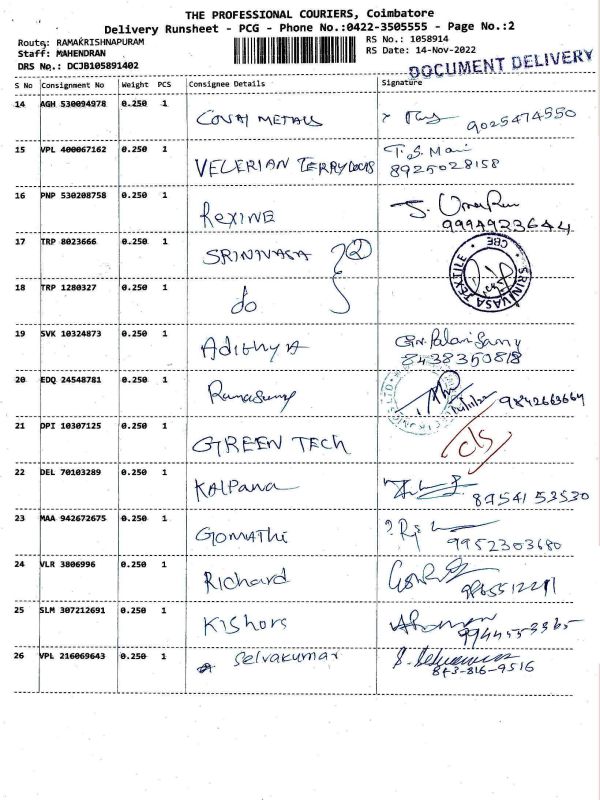 THE PROFESSIONAL COURIERS, Coimbatore
Delivery Runsheet - PCG - Phone No.:0422-3505555 - Page No.:2
Route: RAMAKRISHNAPURAM
RS No.: 1058914
Staff: MAHENDRAN
RS Date: 14-Nov-2022
DRS No.: DCJB105891402
DOCUMENT DELIVERY
S No Consignment No Weight PCS Consignee Details Signature
14 AGH 530094978 0.250 1 COVAI METALS 9025474550
15 VPL 400067162 0.250 1 VELERIAN TERRY T.S. Mani
8925028158
16 PNP 530208758 0.250 1 REXINE
9994933644
17 TRP 8023666 0.250 1 SRINIVASA 2
SRINIVASA TEXTILE CBE
18 TRP 1280327 0.250 1 do
19 SVK 10324873 0.250 1 Adithya
8438350818
20 EDQ 24548781 0.250 1 Ramasamy 9842663664
21 DPI 10307125 0.250 1 GREEN TECH c/s
22 DEL 70103289 0.250 1 Kalpana 8754153530
23 MAA 942672675 0.250 1 Gomathi
9952303680
24 VLR 3806996 0.250 1 Richard
25 SLM 307212691 0.250 1 Kishors
26 VPL 216069643 0.250 1 Selvakumar
843-816-9516